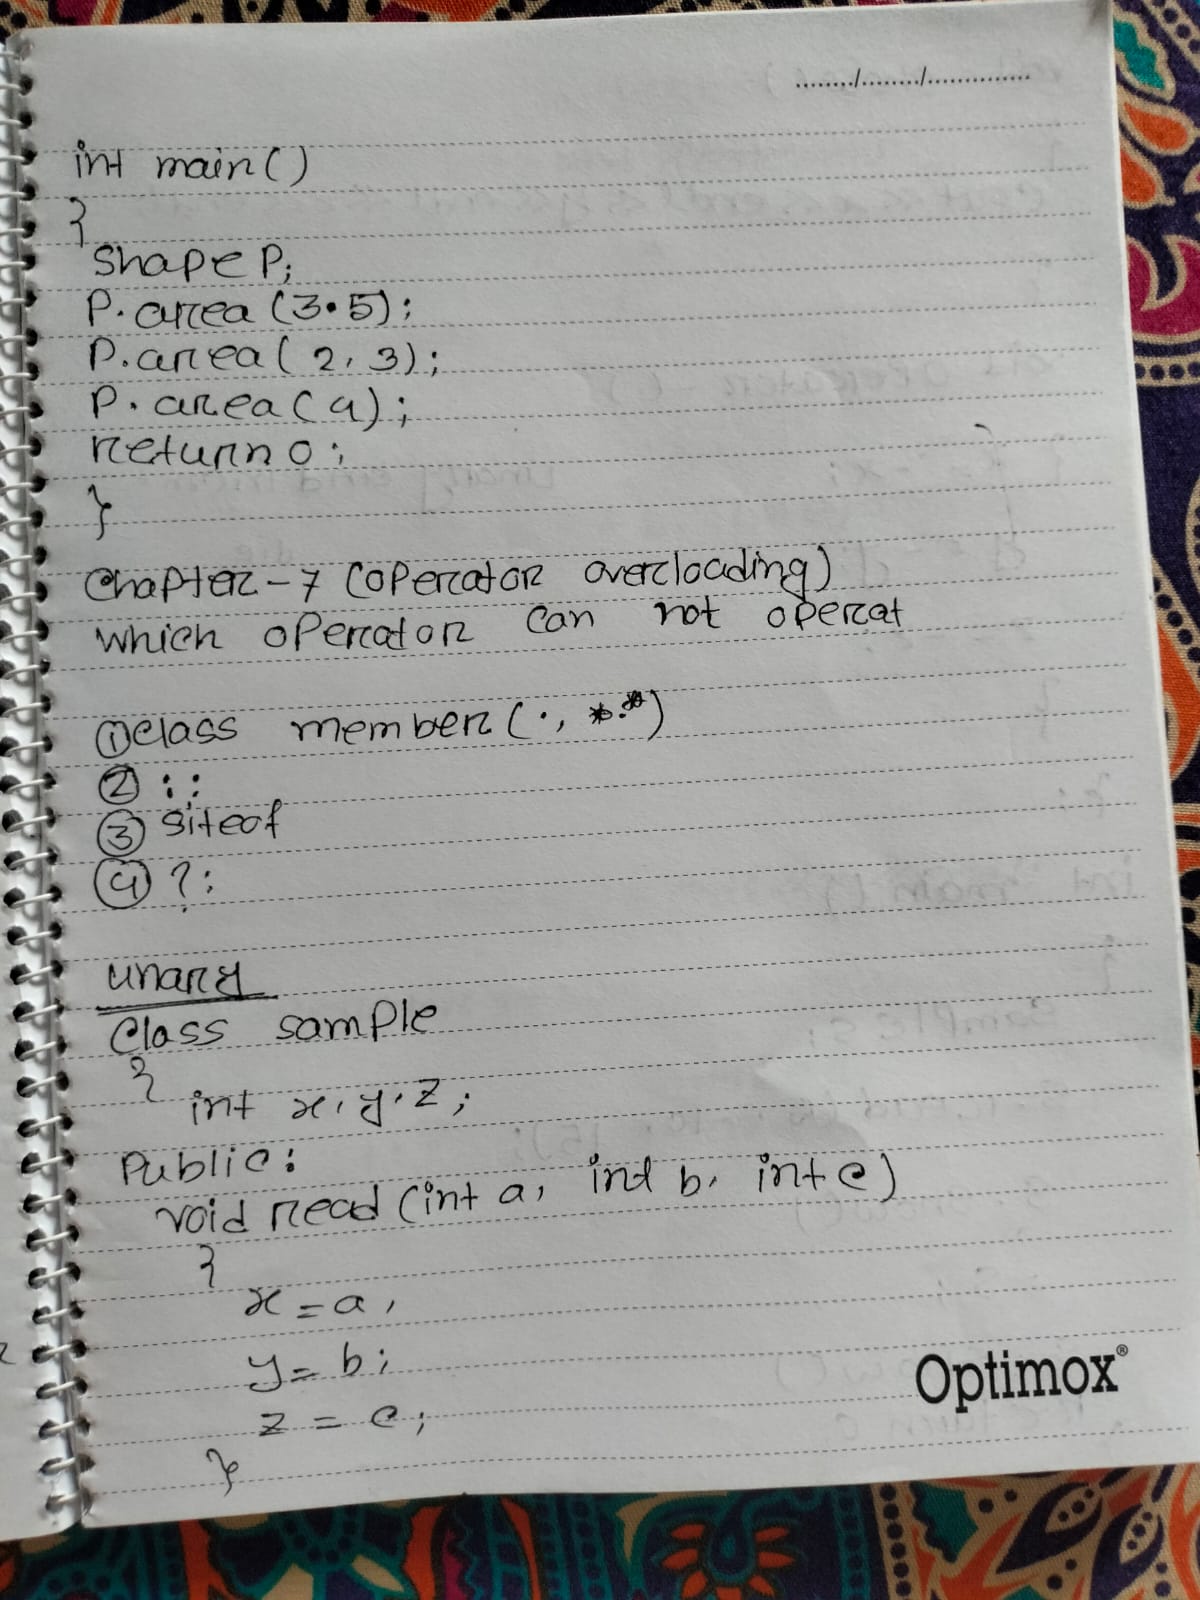 ......../......../..............
int main()
{
shape P;
P.area (3.5);
P.area( 2, 3);
P.area(4);
return 0;
}
Chapter-7 (operator overloading)
which operator can not operat
① class member (., *.*)
② ::
③ siteof
④ ?:
unary
Class sample
{
int x, y, z;
Public:
void read (int a, int b, int c)
{
x = a,
y = b;
z = c;
}
Optimox®